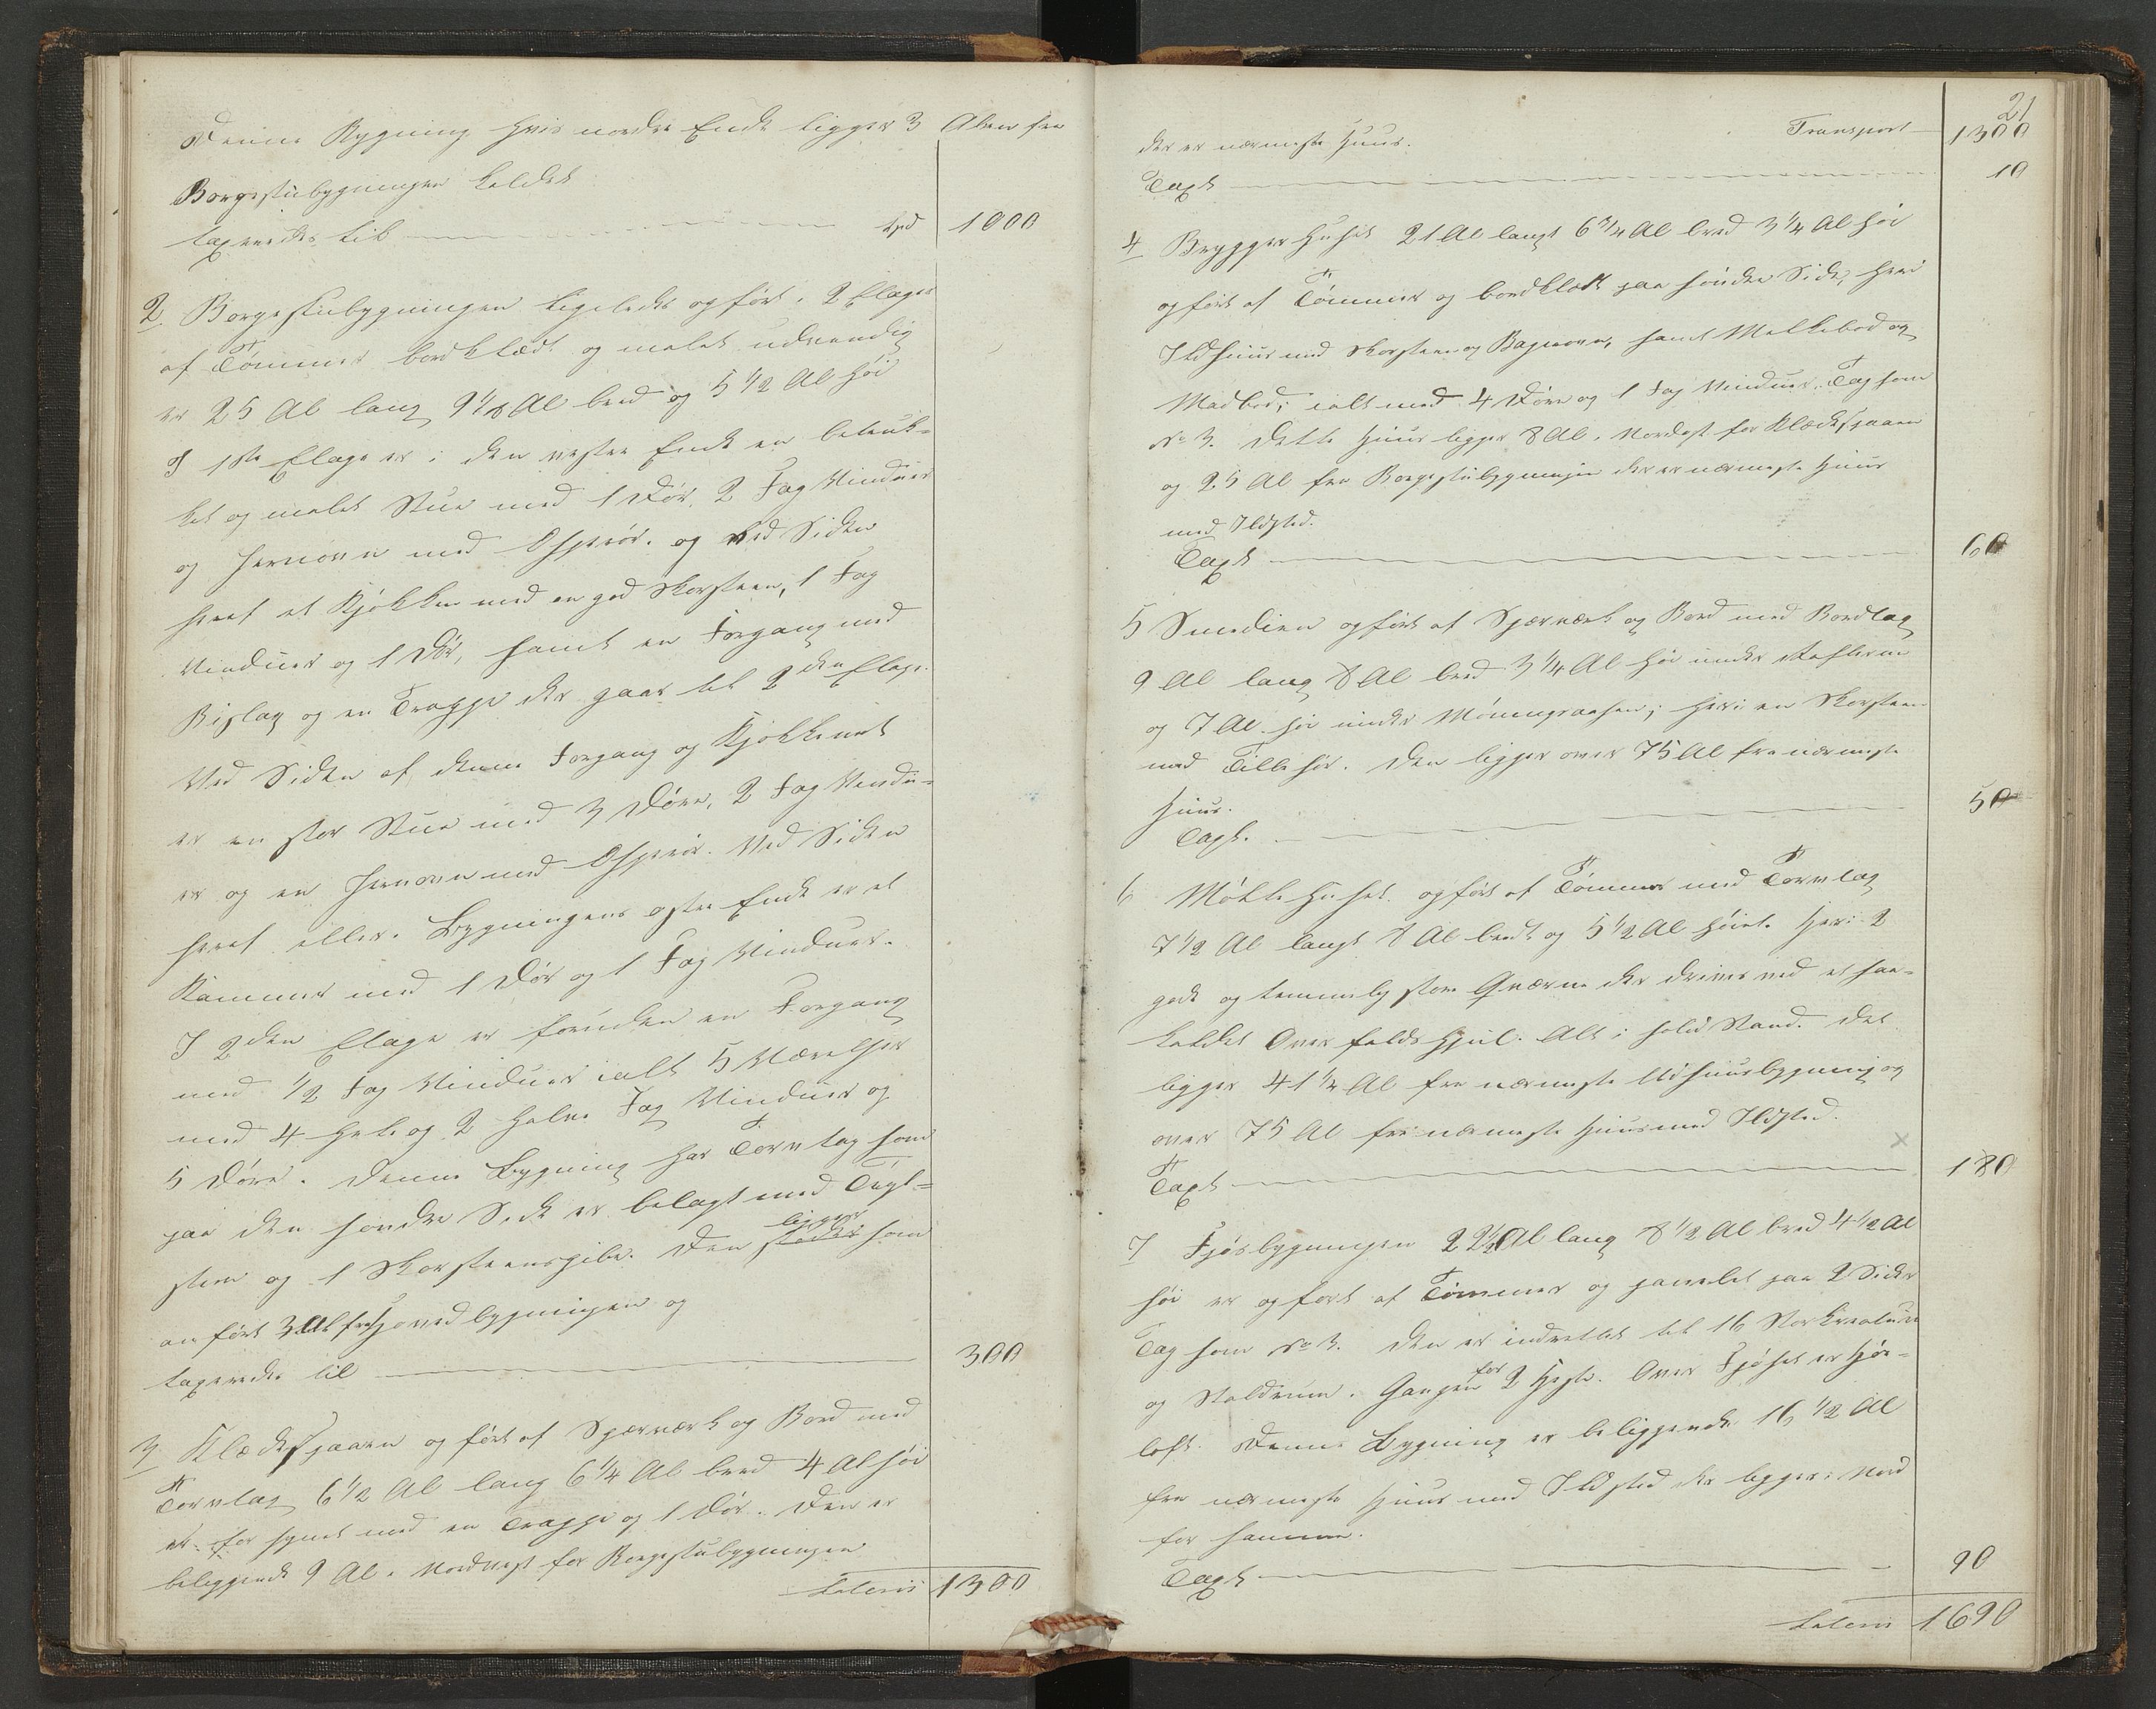 Denne Bygning hvis nordre Ende ligger 3 Alen fra
Borgestubygningen kaldet
taxeredes til — Spd 1000
2 Borgestubygningen ligeledes opført i 2 Etager
af Tømmer bordklædt og malet udvendig
er 25 Al lang 9 1/2 Al bred og 5 1/2 Al høi
I 1ste Etage er i den vestre Ende en betræk-
ket og malet Stue med 1 Dør, 2 Fag Vinduer
og Jernovn med Ophørør. og ved Siden
heraf et Kjøkken med en god Skorsteen, 1 Fag
Vinduer og 1 Dør, samt en Forgang med
Bislag og en Trappe der gaar til 2den Etage.
Ved Siden af denne Forgang og Kjøkkenet
er en stor Stue med 3 Døre, 2 Fag Vindu-
er og en Jernovn med Ophørør. Ved Siden
heraf eller i Bygningens østre Ende er et
Kammer med 1 Dør og 1 Fag Vinduer.
I 2den Etage er foruden en Forgang
med 1/2 Fag Vinduer ialt 5 Værelser
med 4 hele og 2 halve Fag Vinduer og
5 Døre. Denne Bygning har Torvtag som
paa den søndre Side er belagt med Tegl-
steen og 1 Skorsteenspibe. Den ligger som
anført 3 Al fra Hovedbygningen og
taxeredes til — 300
3 Klædespaaren opført af Spærværk og Bord med
Torvtag 6 1/2 Al lang 6 1/4 Al bred 4 Al høi
er forsynet med en Trappe og 1 Dør. Den er
beliggende 9 Al i Nordvest for Borgestubygningen
Lateris 1300
21
Transport 1300
der er nærmeste Huus.
Taxt — 10
4 Bryggerhuset 21 Al langt 6 3/4 Al bred 3 1/4 Al høi
opført af Tømmer og bordklædt paa søndre Side, heri
Ildhuus med Skorsteen og Bagerovn, samt Melkebod og
Madbod; ialt med 4 Døre og 1 Fag Vinduer. Tag som
No 3. Dette Huus ligger 8 Al. Nordost for Klædespaaren
og 25 Al fra Borgestubygningen der er nærmeste Huus
med Ildsted.
Taxt — 60
5 Smedien opført af Spærværk og Bord med Bordtag
9 Al lang 8 Al bred 3 1/4 Al høi under Rafterne
og 7 Al. høi under Mønningsaasen; heri en Skorsteen
med Tilbehør. Den ligger over 75 Al fra nærmeste
Huus.
Taxt. — 50
6 Møllehuset opført af Tømmer med Torvtag
7 1/2 Al langt 8 Al bredt og 5 1/2 Al høiet. Heri 2
gode og temmelig store Qværne der drives ved et saa-
kaldet Overfaldshjul. Alt i solid Stand. Det
ligger 41 1/4 Al fra nærmeste Udhuusbygning og
over 75 Al fra nærmeste Huus med Ildsted.
Taxt — 180
7 Fjøsbygningen 22 1/2 Al lang 8 1/2 Al bred 4 1/2 Al
høi er opført af Tømmer og panelet paa 2 Sider
Tag som No 3. Den er indrettet til 16 Storkreature
og Staldrum i Gangen for 2 Heste. Over Fjøset er Høe-
loft. Denne Bygning er beliggende 16 1/2 Al
fra nærmeste Huus med Ildsted der ligger i Nord
for samme.
Taxt — 90
Lateris 1690